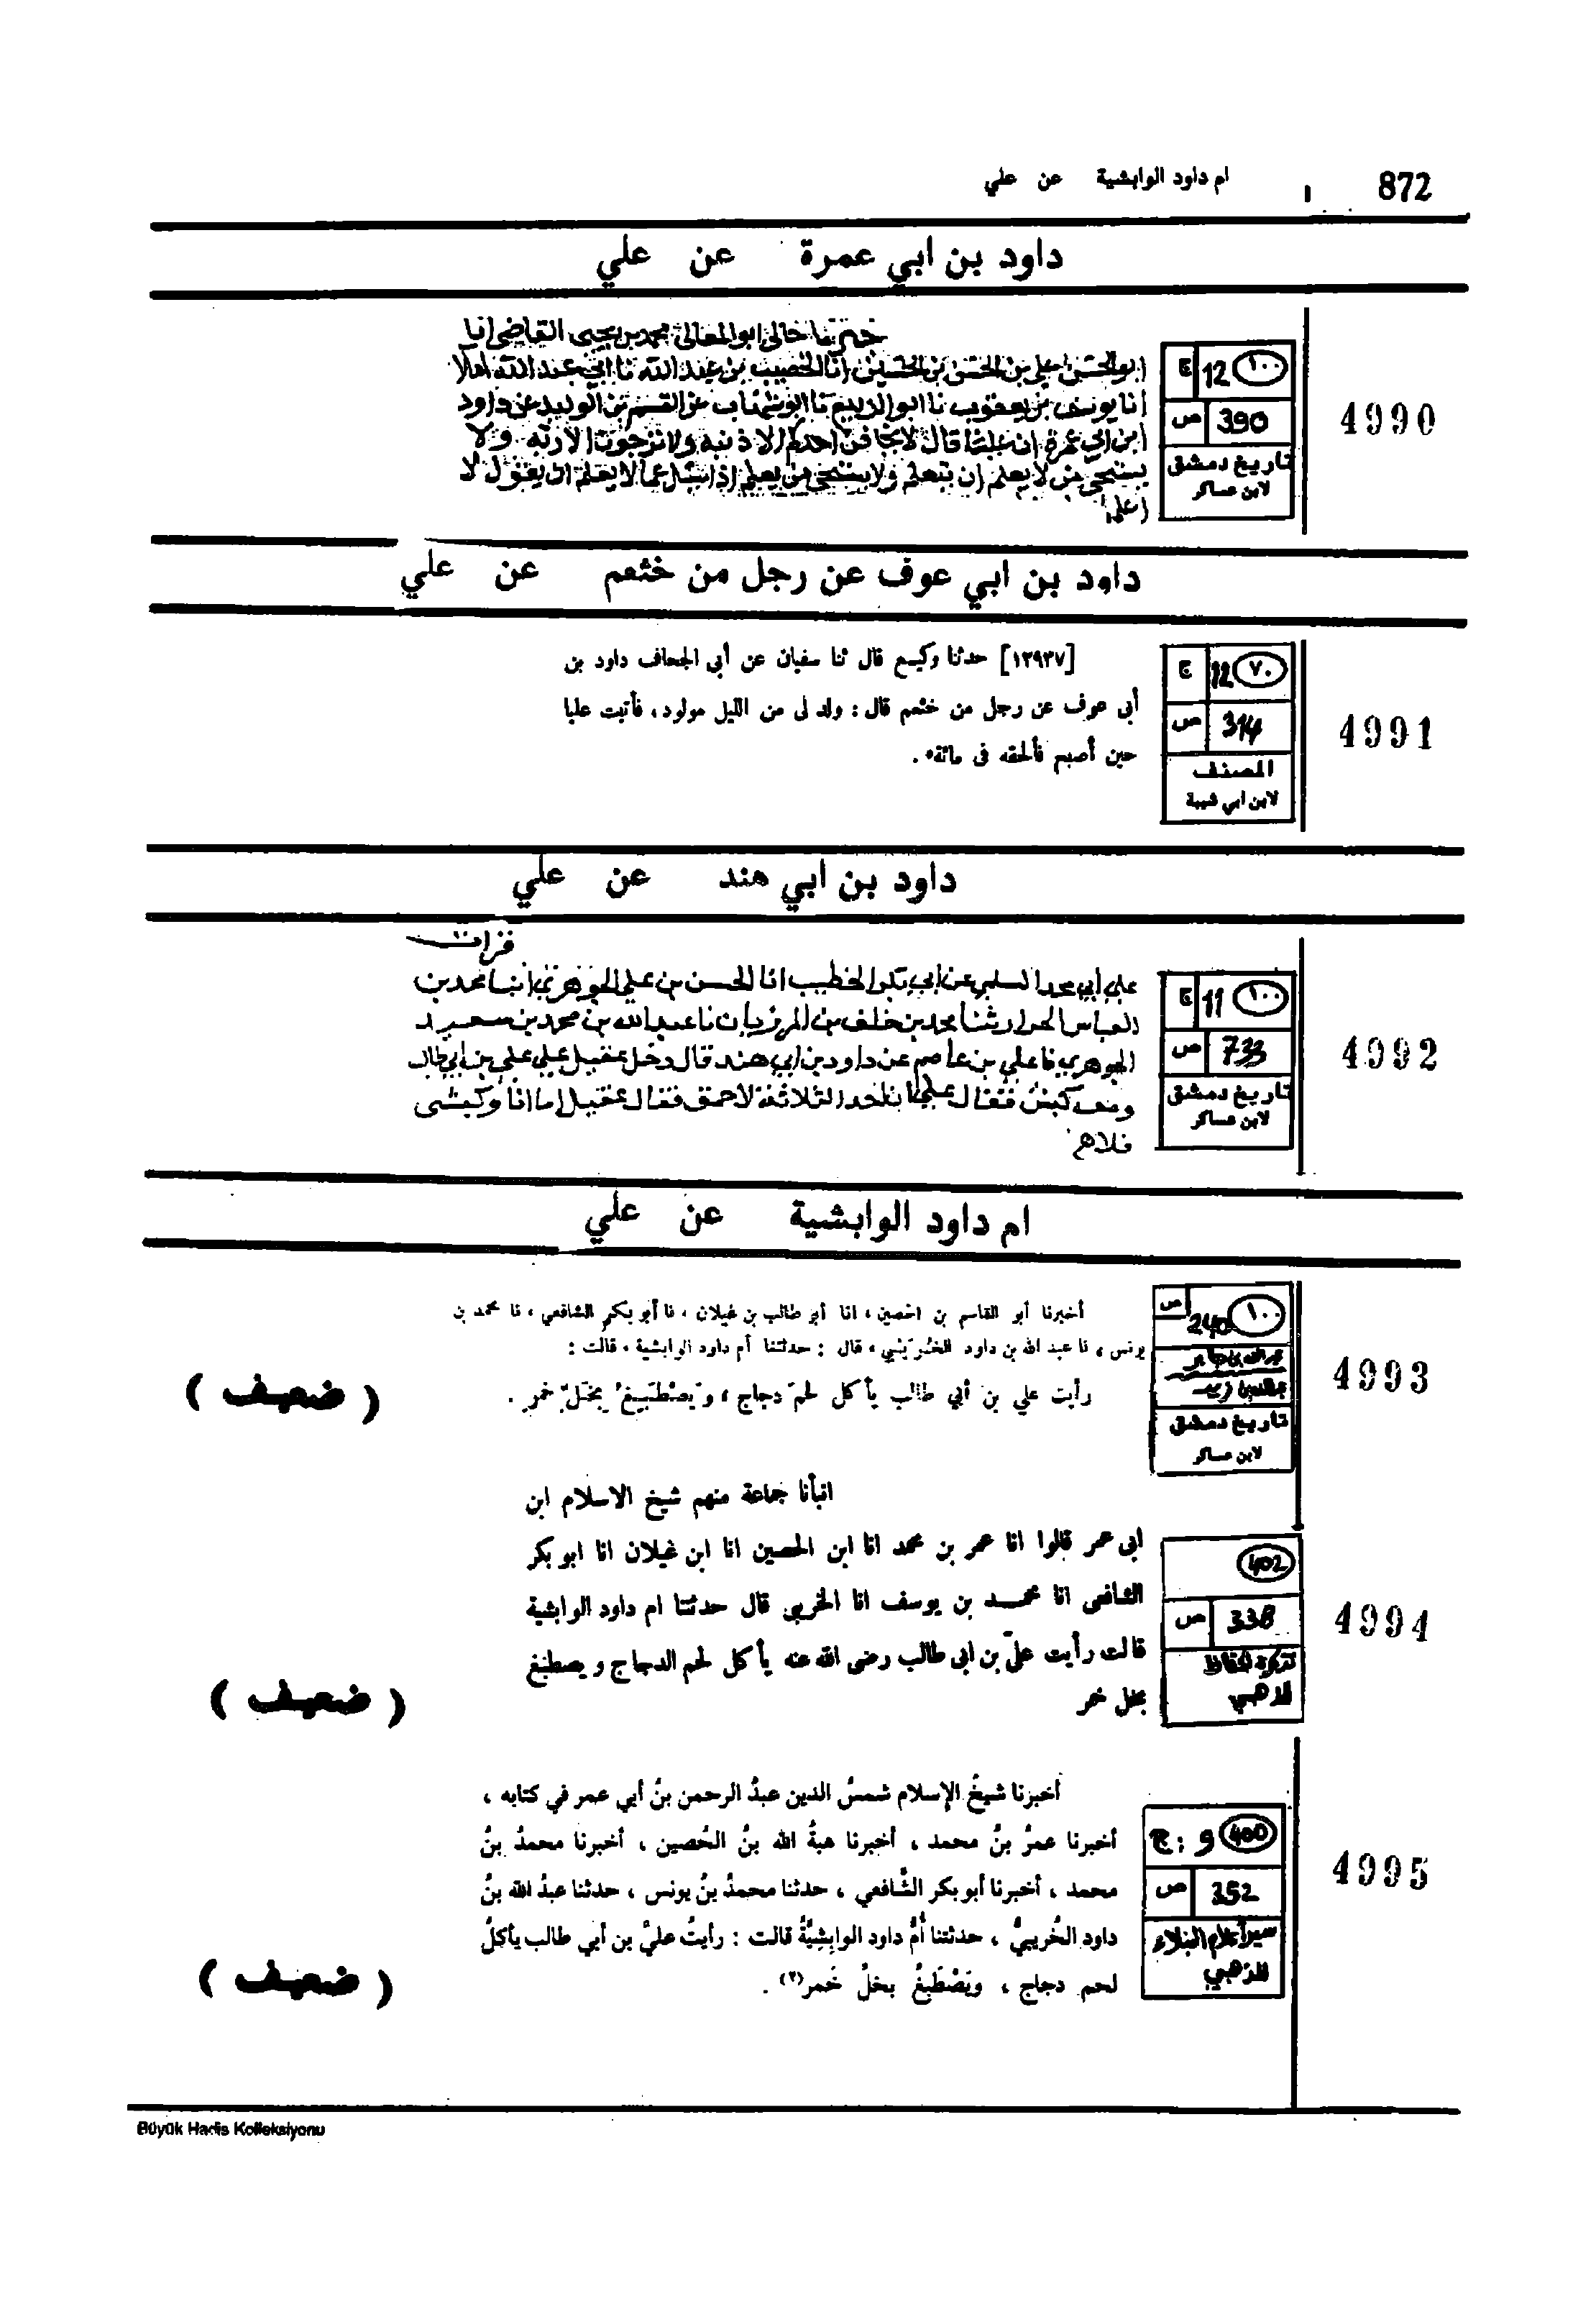 872
ام داود الوابشية عن علي
داود بن ابي عمرة عن علي
4990
ج 12 ١٠٠
ص 390
تاريخ دمشق
لابن عساكر
خالي ابو المعالي محمد بن يحيى القاضي انا
ابو الحسن علي بن الحسن بن الحسين انا الخصيب بن عبد الله نا ابي عبد الله املا
انا يوسف بن يعقوب نا ابو الربيع نا ابو شهاب عن القسم بن الوليد عن داود
ابن ابي عمرة ان عليا قال لا يخافن احدكم الا ذنبه ولا يرجون الا ربه ولا
يستحي من لا يعلم ان يتعلم ولا يستحي من يعلم اذا سئل عما لا يعلم ان يقول لا
اعلم
داود بن ابي عوف عن رجل من خثعم عن علي
4991
ج 12 ٧٠
ص 314
المصنف
لابن ابي شيبة
[١٢٩٣٧] حدثنا وكيع قال ثنا سفيان عن أبي الجحاف داود بن
أبى عوف عن رجل من خثعم قال : ولد لى من الليل مولود ، فأتيت عليا
حين أصبح فألحقه فى مائة .
داود بن ابي هند عن علي
4992
ج 11 ١٠٠
ص 733
تاريخ دمشق
لابن عساكر
قرات
علي ابي محمد السلمي عن ابي بكر الخطيب انا الحسن بن علي الجوهري انبا محمد بن
العباس الحراز ثنا محمد بن خلف بن المرزبان نا عبد الله بن محمد بن سعيد
الجوهري نا علي بن عاصم عن داود بن ابي هند قال دخل عقيل علي علي بن ابي طالب
ومعه كبش فقال علي ان احد الثلاثة لاحمق فقال عقيل اما انا وكبشي
فلا هم
ام داود الوابشية عن علي
4993
١٠٠ ص 240
تاريخ دمشق
لابن عساكر
أخبرنا أبو القاسم بن الحصين ، انا أبو طالب بن غيلان ، نا أبو بكر الشافعي ، نا محمد بن
يونس ، نا عبد الله بن داود الخُرَيْبي ، قال : حدثتنا أم داود الوابشية ، قالت :
رأيت علي بن أبي طالب يأكل لحمَ دجاج ، وَيَصْطَبِغُ بخَلّ خمر .
( ضعيف )
4994
402
ص 338
تذكرة الحفاظ
للذهبي
انبأنا جماعة منهم شيخ الاسلام ابن
ابى عمر قالوا انا عمر بن محمد انا ابن الحصين انا ابن غيلان انا ابو بكر
الشافعى انا محمد بن يوسف انا الخريبى قال حدثتنا ام داود الوابشية
قالت رأيت علىّ بن ابى طالب رضى الله عنه يأكل لحم الدجاج ويصطبغ
بخل خمر
( ضعيف )
4995
ج : 9 400
ص 352
سير أعلام النبلاء
للذهبي
أخبرنا شيخُ الإسلام شمسُ الدين عبدُ الرحمن بنُ أبي عمر في كتابه ،
أخبرنا عمرُ بنُ محمد ، أخبرنا هبةُ الله بنُ الحُصين ، أخبرنا محمدُ بنُ
محمد ، أخبرنا أبو بكر الشَّافعي ، حدثنا محمدُ بنُ يونس ، حدثنا عبدُ الله بنُ
داود الخُريبيُّ ، حدثتنا أُمُّ داود الوابِشِيَّةُ قالت : رأيتُ عليَّ بن أبي طالب يأكلُ
لحم دجاج ، ويَصْطَبِغُ بخلِّ خَمر(٢) .
( ضعيف )
Büyük Hadis Kolleksiyonu